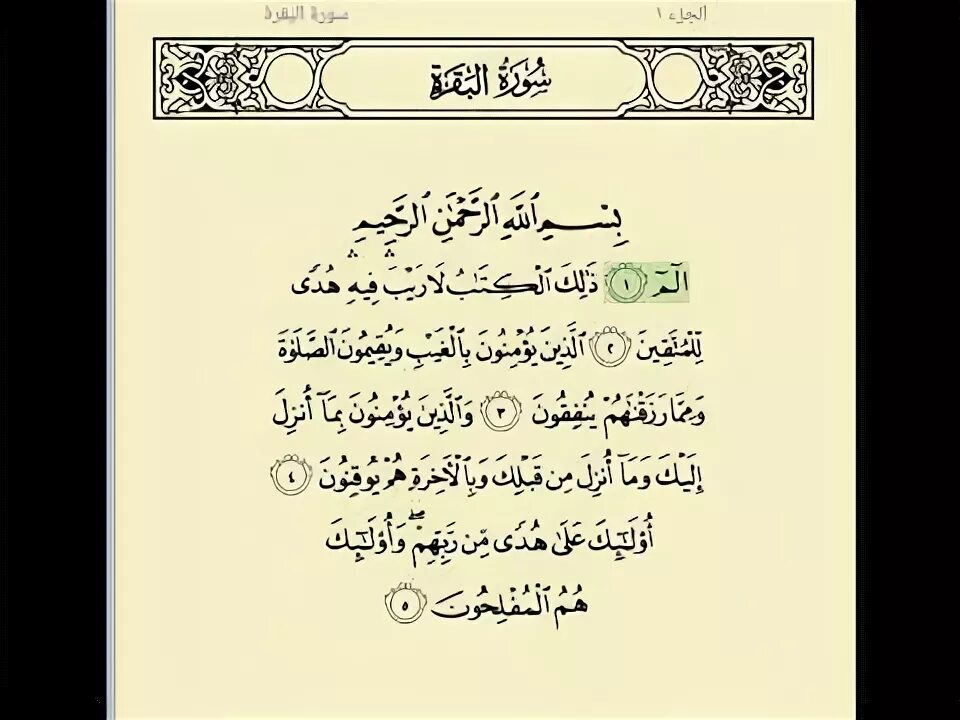 الجزء ١ سورة البقرة
سُورَةُ البَقَرَةِ
بِسْمِ ٱللَّهِ ٱلرَّحْمَٰنِ ٱلرَّحِيمِ
الٓمٓ ١ ذَٰلِكَ ٱلْكِتَٰبُ لَا رَيْبَ ۛ فِيهِ ۛ هُدًى
لِّلْمُتَّقِينَ ٢ ٱلَّذِينَ يُؤْمِنُونَ بِٱلْغَيْبِ وَيُقِيمُونَ ٱلصَّلَوٰةَ
وَمِمَّا رَزَقْنَٰهُمْ يُنفِقُونَ ٣ وَٱلَّذِينَ يُؤْمِنُونَ بِمَآ أُنزِلَ
إِلَيْكَ وَمَآ أُنزِلَ مِن قَبْلِكَ وَبِٱلْأَخِرَةِ هُمْ يُوقِنُونَ ٤
أُو۟لَٰٓئِكَ عَلَىٰ هُدًى مِّن رَّبِّهِمْ ۖ وَأُو۟لَٰٓئِكَ
هُمُ ٱلْمُفْلِحُونَ ٥